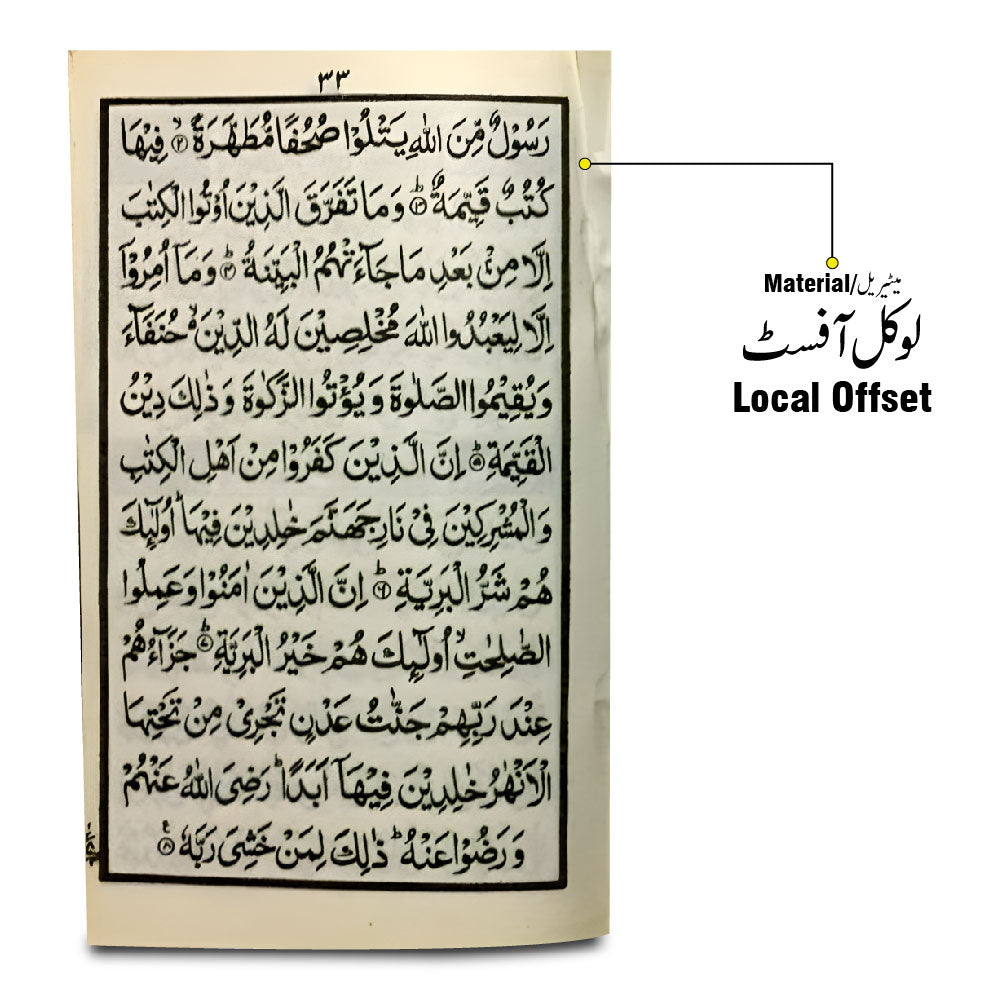 ٣٣
رَسُوْلٌ مِّنَ اللّٰهِ يَتْلُوْا صُحُفًا مُّطَهَّرَةً ۙ﴿۲﴾ فِيْهَا
كُتُبٌ قَيِّمَةٌ ؕ﴿۳﴾ وَمَا تَفَرَّقَ الَّذِيْنَ اُوْتُوا الْكِتٰبَ
اِلَّا مِنْۢ بَعْدِ مَا جَآءَتْهُمُ الْبَيِّنَةُ ؕ﴿۴﴾ وَمَاۤ اُمِرُوْۤا
اِلَّا لِيَعْبُدُوا اللّٰهَ مُخْلِصِيْنَ لَهُ الدِّيْنَ ۙ۬ حُنَفَآءَ
وَيُقِيْمُوا الصَّلٰوةَ وَيُؤْتُوا الزَّكٰوةَ وَذٰلِكَ دِيْنُ
الْقَيِّمَةِ ؕ﴿۵﴾ اِنَّ الَّذِيْنَ كَفَرُوْا مِنْ اَهْلِ الْكِتٰبِ
وَالْمُشْرِكِيْنَ فِيْ نَارِ جَهَنَّمَ خٰلِدِيْنَ فِيْهَا ؕ اُولٰٓئِكَ
هُمْ شَرُّ الْبَرِيَّةِ ؕ﴿۶﴾ اِنَّ الَّذِيْنَ اٰمَنُوْا وَعَمِلُوا
الصّٰلِحٰتِ ۙ اُولٰٓئِكَ هُمْ خَيْرُ الْبَرِيَّةِ ؕ﴿۷﴾ جَزَآؤُهُمْ
عِنْدَ رَبِّهِمْ جَنّٰتُ عَدْنٍ تَجْرِيْ مِنْ تَحْتِهَا
الْاَنْهٰرُ خٰلِدِيْنَ فِيْهَاۤ اَبَدًا ؕ رَضِيَ اللّٰهُ عَنْهُمْ
وَرَضُوْا عَنْهُ ؕ ذٰلِكَ لِمَنْ خَشِيَ رَبَّهٗ ﴿۸﴾ ع
Material/میٹیریل
لوکل آفسٹ
Local Offset